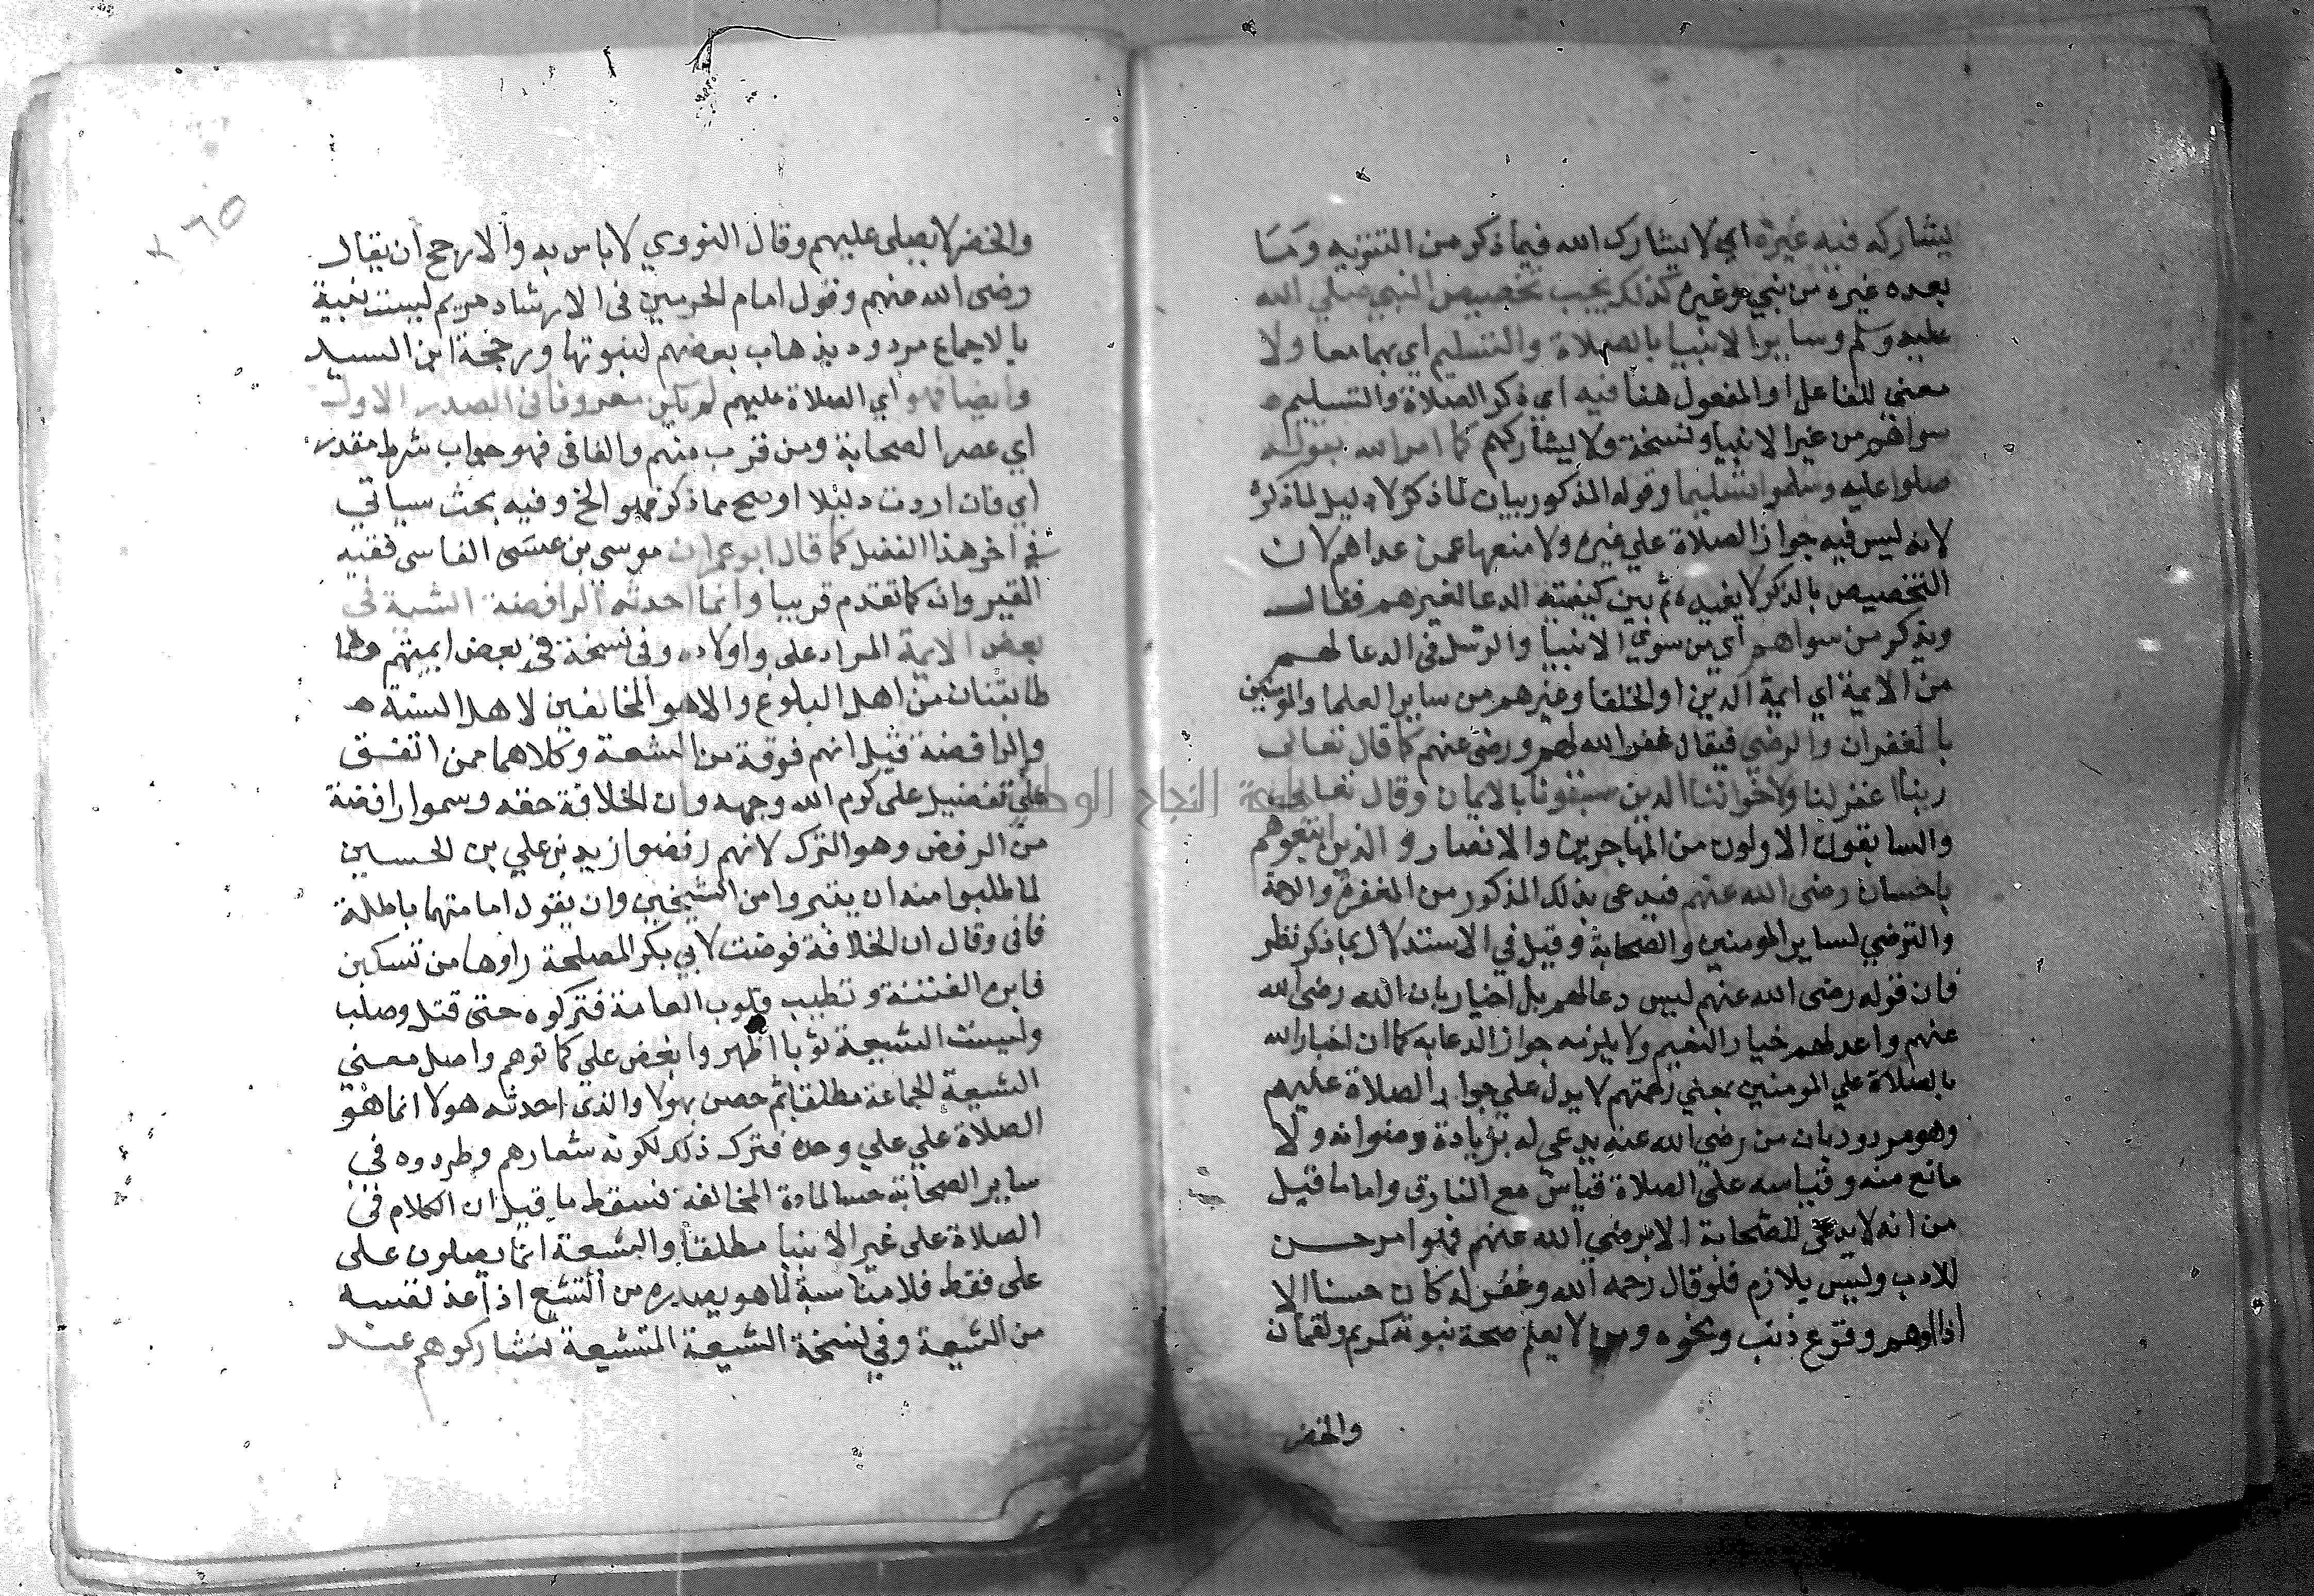 يشاركه فيه غيره اي لا يشارك الله فيما ذكر من التنزيه وما
بعده غيره من نبي وغيره كذلك يجب تخصيص النبي صلي الله
عليه وسلم وساير الانبيا بالصلاة والتسليم اي بهما معا ولا
معني للفاعل او المفعول هنا فيه اي ذكر الصلاة والتسليم
سواهم من غير الانبيا ونسخة ولا يشاركهم كما امر الله بقوله
صلوا عليه وسلموا تسليما وقوله المذكور بيان لما ذكر لا دليل لما ذكره
لانه ليس فيه جواز الصلاة علي غيره ولا منعها عمن عداهم لان
التخصيص بالذكر لا يفيده ثم بين كيفية الدعا لغيرهم فقال
ويذكر من سواهم اي من سوي الانبيا والرسل في الدعا لهم
من الايمة اي ايمة الدين او الخلفا وغيرهم من ساير العلما والمومنين
بالغفران والرضي فيقال غفر الله لهم ورضى عنهم كما قال تعالى
ربنا اغفر لنا ولاخواننا الذين سبقونا بالايمان وقال تعالى
والسابقون الاولون من المهاجرين والانصار والذين اتبعوهم
باحسان رضى الله عنهم فيدعى بذلك المذكور من المغفرة والرحمة
والترضي لساير المومنين والصحابة وقيل في الاستدلال بما ذكر نظر
فان قوله رضى الله عنهم ليس دعا لهم بل اخبار بان الله رضى الله
عنهم واعد لهم خيار النعيم ولا يلزمه جواز الدعا به كما ان اخبار الله
بالصلاة علي المومنين بمعني رحمتهم لا يدل علي جواز الصلاة عليهم
وهو مردود بان من رضي الله عنه يدعى له بزيادة رضوانه ولا
مانع منه وقياسه على الصلاة قياس مع الفارق واما ما قيل
من انه لا يدعى للصحابة الا برضي الله عنهم فهو امر حسن
للادب وليس بلازم فلو قال رحمه الله وغفر له كان حسنا الا
اذا اوهم وقوع ذنب ونحوه ومن لا يعلم صحة نبوته كمريم ولقمان
والخضر
والخضر لا يصلى عليهم وقال النووي لا باس به والارجح ان يقال
رضى الله عنهم وقول امام الحرمين في الارشاد مريم ليست نبية
بالاجماع مردود بذهاب بعضهم لنبوتها ورجحه ابن السيد
وايضا فهو اي الصلاة عليهم لم يكن معروفا في الصدر الاول
اي عصر الصحابة ومن قرب منهم والفا في فهو جواب شرط مقدر
اي فان اردت دليلا اوضح مما ذكر فهو الخ وفيه بحث سياتي
في اخر هذا الفصل كما قال ابو عمران موسي بن عيسى الفاسى فقيه
القيروان كما تقدم قريبا وانما احدثه الرافضة الشيعة في
بعض الايمة المراد على واولاده وفى نسخة في بعض ايمتهم وهما
طايفتان من اهل البدع والاهوا المخالفين لاهل السنة
والرافضة قيل انهم فرقة من الشيعة وكلاهما ممن اتفق
على تفضيل على كرم الله وجهه وان الخلافة حقه وسموا رافضة
من الرفض وهو الترك لانهم رفضوا زيد بن علي بن الحسين
لما طلبوا منه ان يتبروا من الشيخين وان يقول امامتهما باطلة
فابى وقال ان الخلافة فوضت لابي بكر لمصلحة راوها من تسكين
نايرة الفتنة وتطييب قلوب العامة فتركوه حتى قتل وصلب
وليست الشيعة ثوبا اظهر وا بغض علي كما توهم واصل معني
الشيعة الجماعة مطلقا ثم خص بهولا والذى احدثه هولا انما هو
الصلاة علي علي وحده فترك ذلك لكونه شعارهم وطردوه في
ساير الصحابة حسما لمادة المخالفة فسقط ما قيل ان الكلام في
الصلاة على غير الانبيا مطلقا والشيعة انما يصلون على
على فقط فلا مناسبة لما هو بصدده من التشيع اذ اعد نفسه
من الشيعة وفي نسخة الشيعة المتشيعة فشاركوهم عند
٢٦٥
جامعة النجاح الوطنية